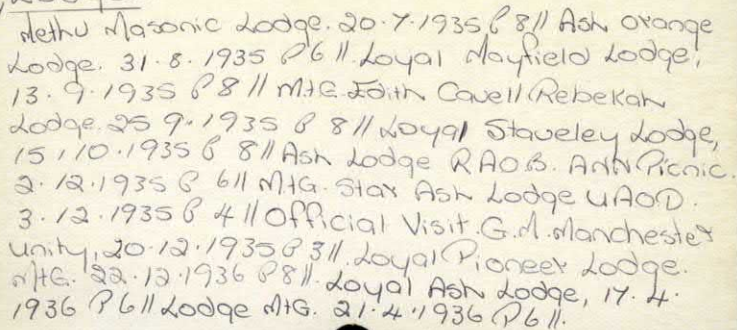 Methv Masonic Lodge. 20.7.1935 P 8 // Ash Orange
Lodge. 31.8.1935 P 6 // Loyal Mayfield Lodge,
13.9.1935 P 8 // MtG. Edith Cavell Rebekah
Lodge. 25 9.1935 P 8 // Loyal Staveley Lodge,
15/10.1935 P 8 // Ash Lodge RAOB. ANN Picnic.
2.12.1935 P 6 // MtG. Star Ash Lodge UAOD.
3.12.1935 P 4 // Official Visit. G.M. Manchester
Unity, 20.12.1935 P 3 //. Loyal Pioneer Lodge.
MtG. 22.12.1936 P 8 //. Loyal Ash Lodge, 17.4.
1936 P 6 // Lodge MtG. 21.4.1936 P 6 //.